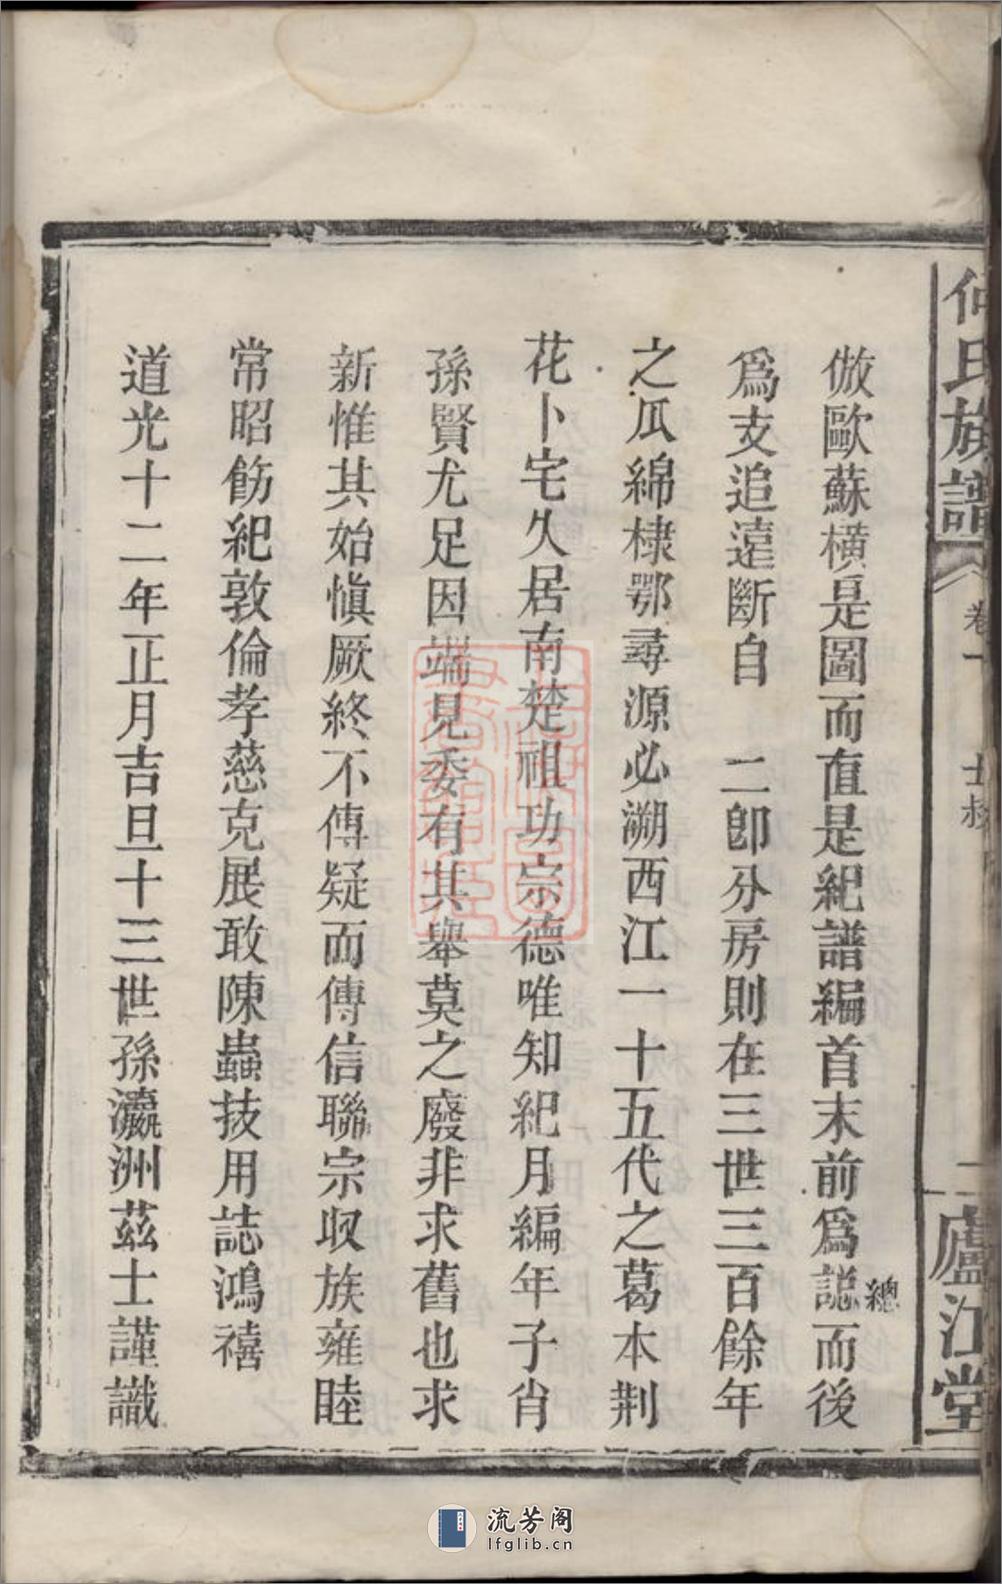 何氏族譜
卷一
廬江堂
倣歐蘇橫是圖而直是紀譜編首末前為誌而後
總
為支追遠斷自　二郎分房則在三世三百餘年
之瓜綿棣鄂尋源必溯西江一十五代之葛本荆
花卜宅久居南楚祖功宗德唯知紀月編年子肖
孫賢尤足因端見委有其舉莫之廢非求舊也求
新惟其始慎厥終不傳疑而傳信聯宗収族雍睦
常昭飭紀敦倫孝慈克展敢陳蟲技用誌鴻禧
道光十二年正月吉旦十三世孫瀛洲茲士謹識
流芳阁
lfglib.cn